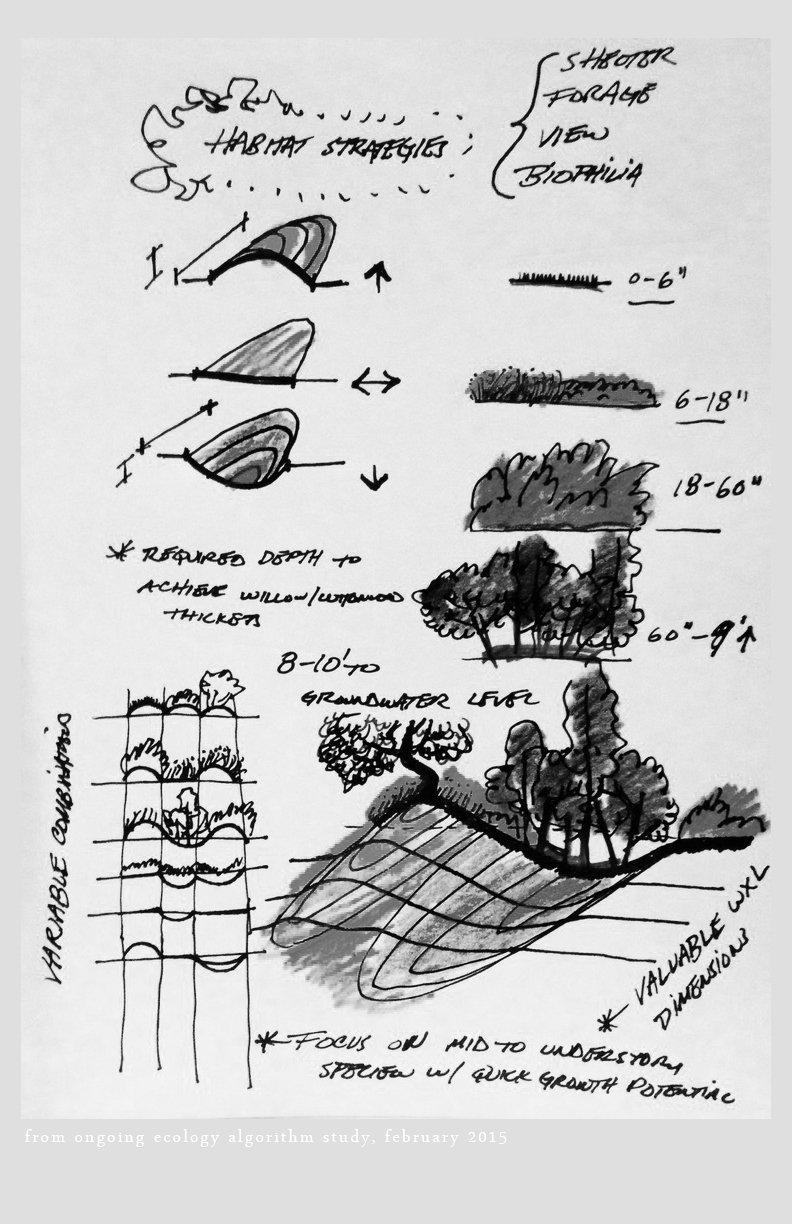 HABITAT STRATEGIES
SHELTER
FORAGE
VIEW
BIOPHILIA
0-6"
6-18"
18-60"
60"-9'↑
* REQUIRED DEPTH TO
ACHIEVE WILLOW/COTTONWOOD
THICKETS
8-10' TO
GROUNDWATER LEVEL
VARIABLE COMBINATIONS
* VALUABLE WXL
DIMENSIONS
* FOCUS ON MID TO UNDERSTORY
SPECIES W/ QUICK GROWTH POTENTIAL
from ongoing ecology algorithm study, february 2015